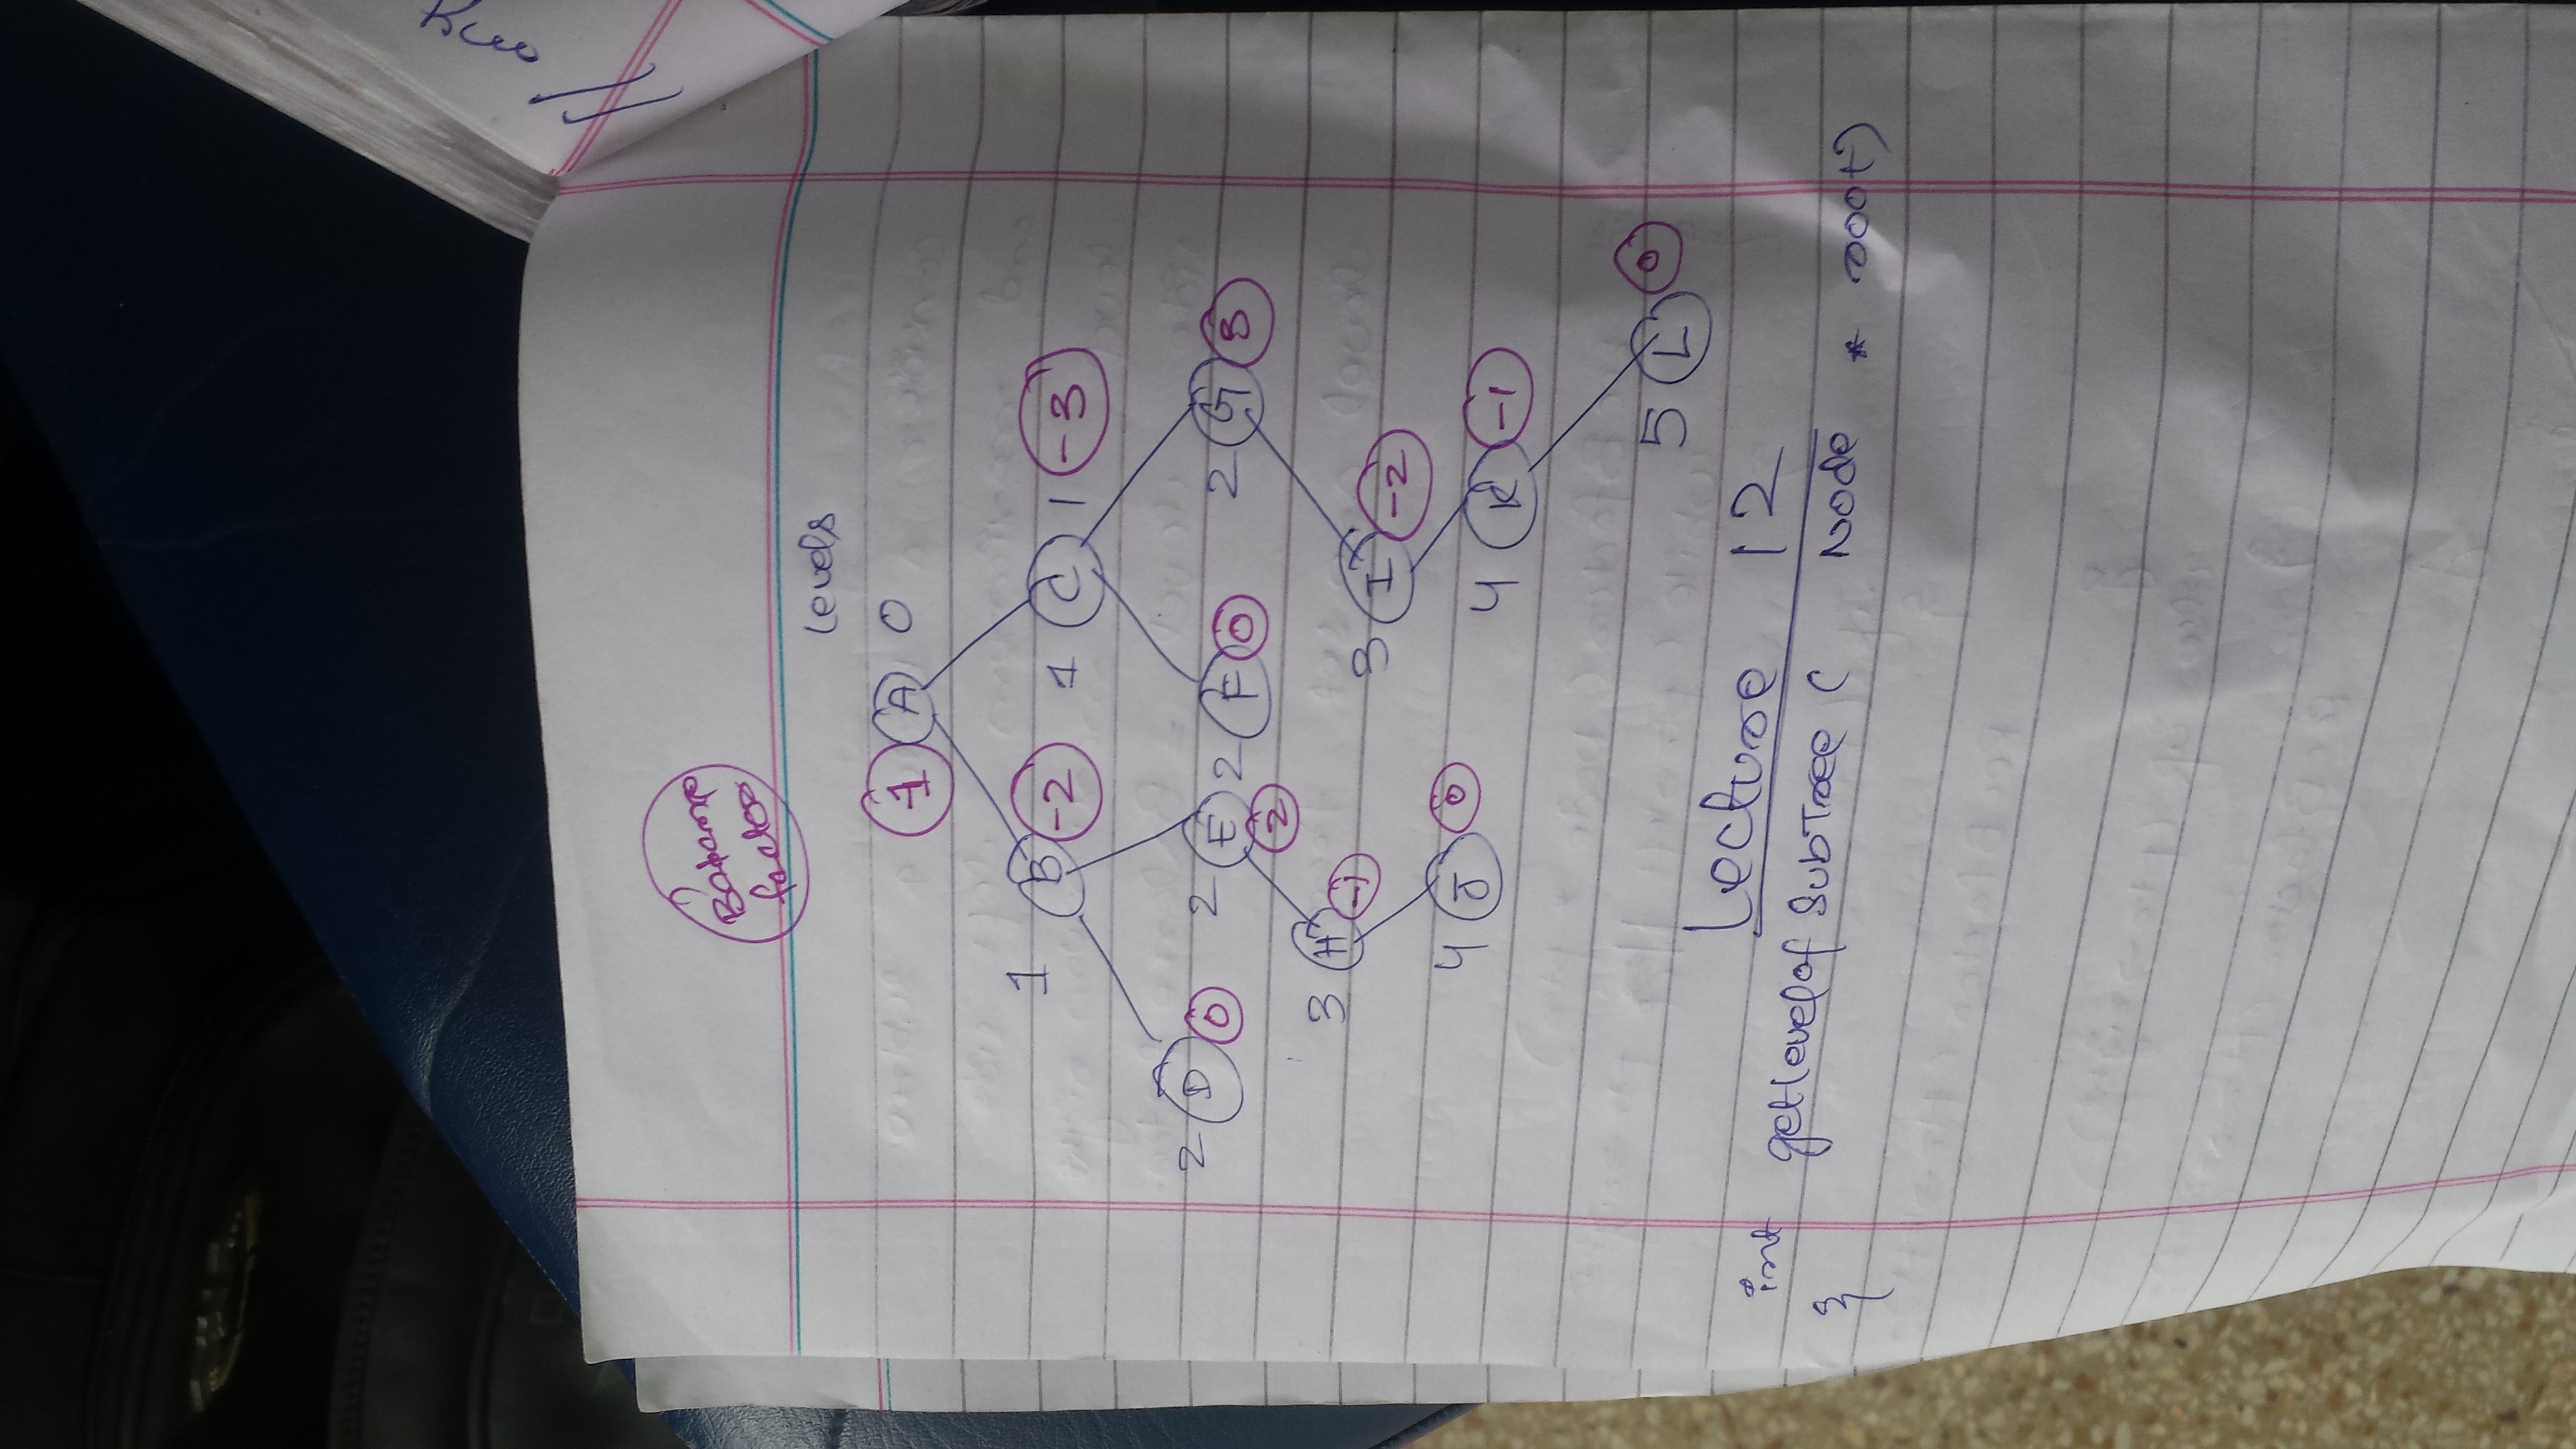 Balance
factor
levels
1 A 0
1 B -2 1 C 1 -3
2 D 0 2 E 2 F 0 2 G 3
2
3 H -1 3 I -2
4 J 0 4 K -1
5 L 0
Lecture 12
int getlevelof SubTree ( Node * root)
{